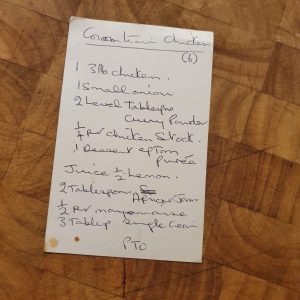 Coronation Chicken
(6)
1 3lb chicken.
1 Small onion
2 Level Tablespns
Curry Powder
1/4 pt chicken Stock.
1 Dessert sp Tom
purée
Juice 1/2 Lemon.
2 Tablespoons
Apricot Jam
1/2 pt mayonnaise
3 Tablsp Single Cream
PTO